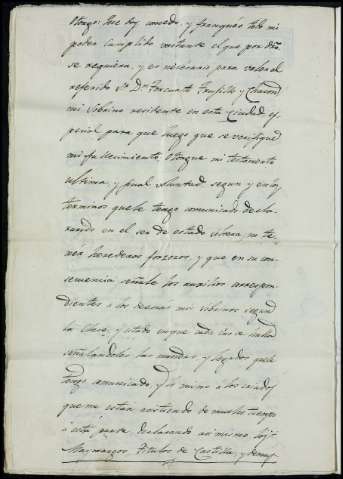 Otorgo: Que doy concedo y franqueo todo mi
poder cumplido bastante el que por dro.
se requiera, y es necesario para valer al
referido Sr. Dn. Trujillo y
mi sobrino residente en esta Ciudad es-
pecial para que luego que se verifique
mi fallecimiento, otorgue mi testamento
ultima, y final voluntad, segun y en los
terminos que le tengo comunicado decla-
rando en el ser de estado soltera, no te-
nér herederos forzosos, y que en su con-
semencia señale los auxilios correspon-
dientes a los demás mi sobrinos segun
la clase, y estado en que cada uno se halla
señalandoles las mandas, y legados que le
tengo comunicado y lo mismo a los criados
que me están asistiendo de mucho tiempo
á esta parte, declarando asi mismo los
Mayorazgos Titulos de Castilla, y demas